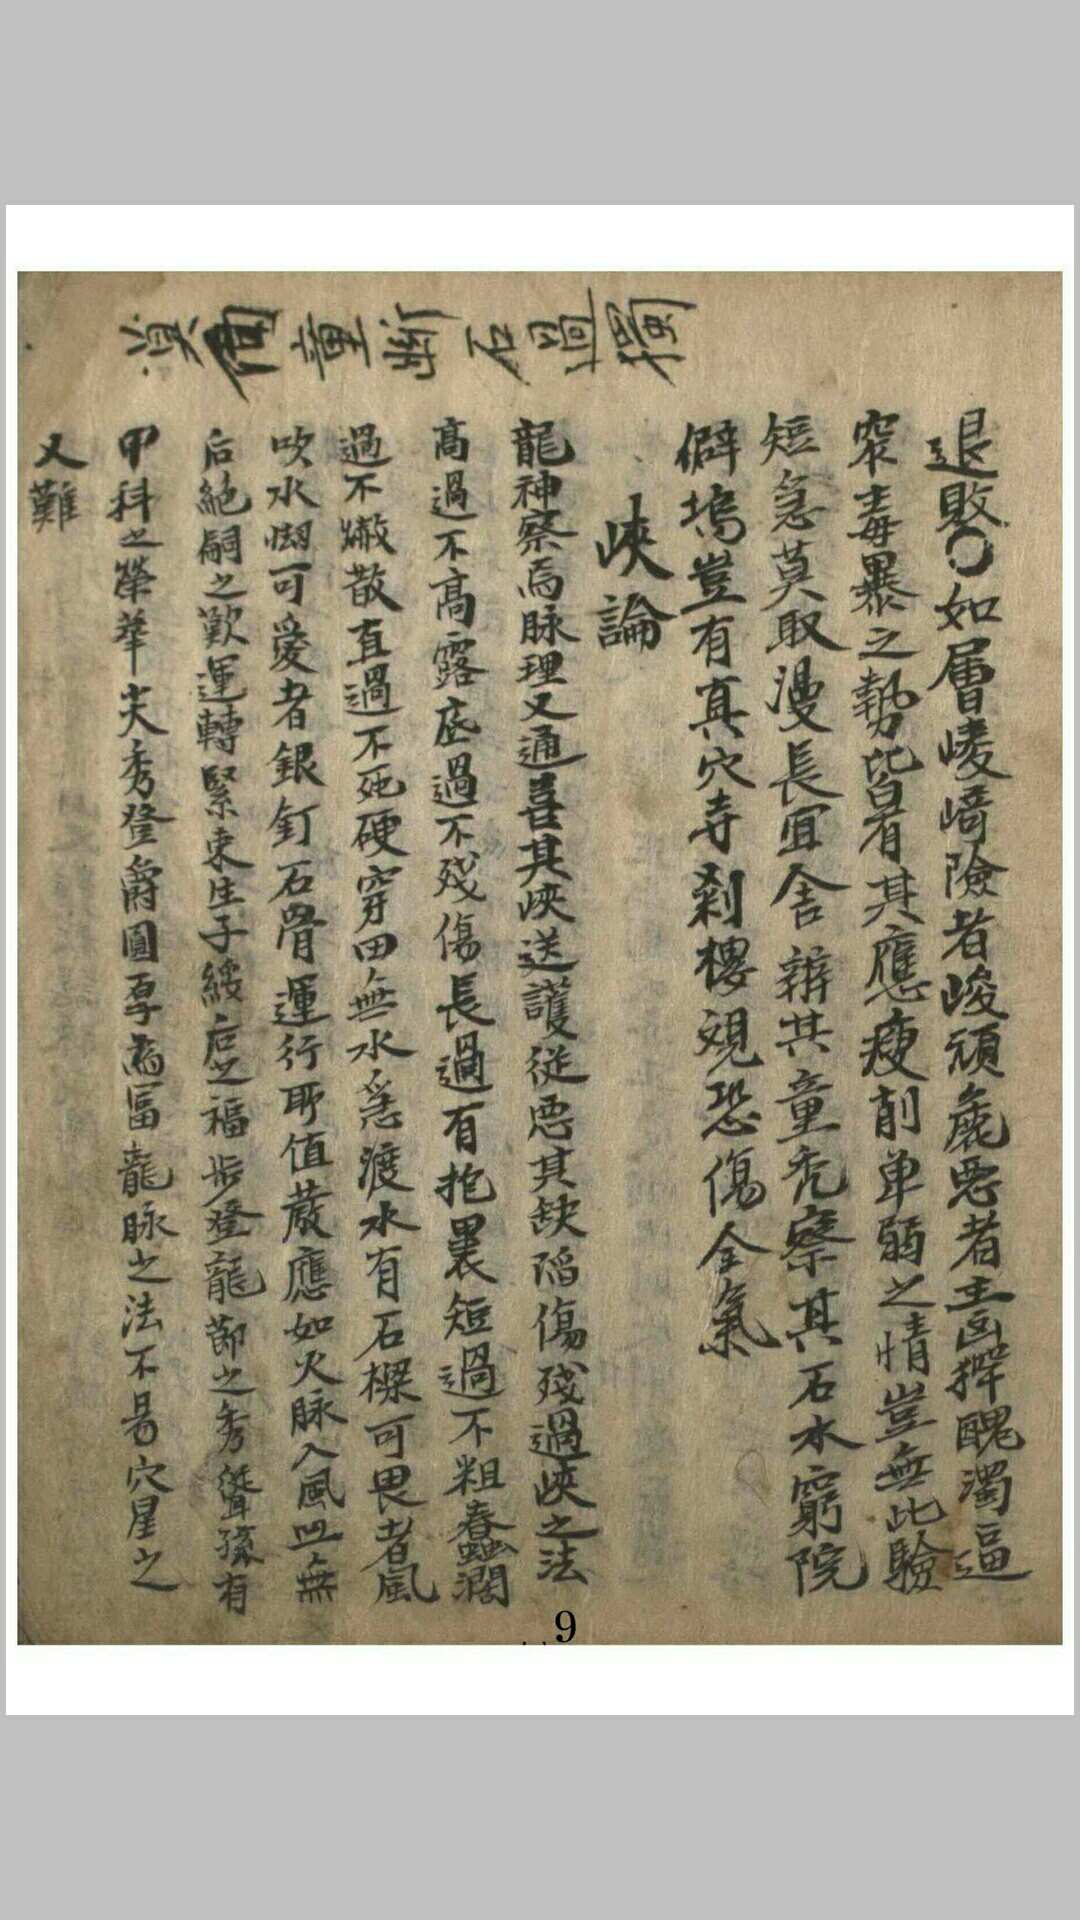 退敗○如層崚崎險者峻頑麁悪者主凶獰醜濁逼
窄毒暴之勢皆看其應瘦削单弱之情豈無此驗
短急莫取漫長宜舎辨其童禿察其石水窮院
僻塢豈有真穴寺刹樓觀恐傷全氣
峽論
龍神察焉脉理又通喜其峽送護從悪其缺陷傷殘過峽之法
高過不高露底過不殘傷長過有抱裏短過不粗蠢濶
過不㪚直過不死硬穿田無水忌渡水有石樑可畏者風
吹水可愛者銀釘石骨運行所值厳應如火脉入風無
后絶嗣之歎運轉緊束生子綏后之福步登龍節之秀孫有
甲科之榮華尖秀登爵圓厚富龍脉之法不易穴星之
又難
石 童
9